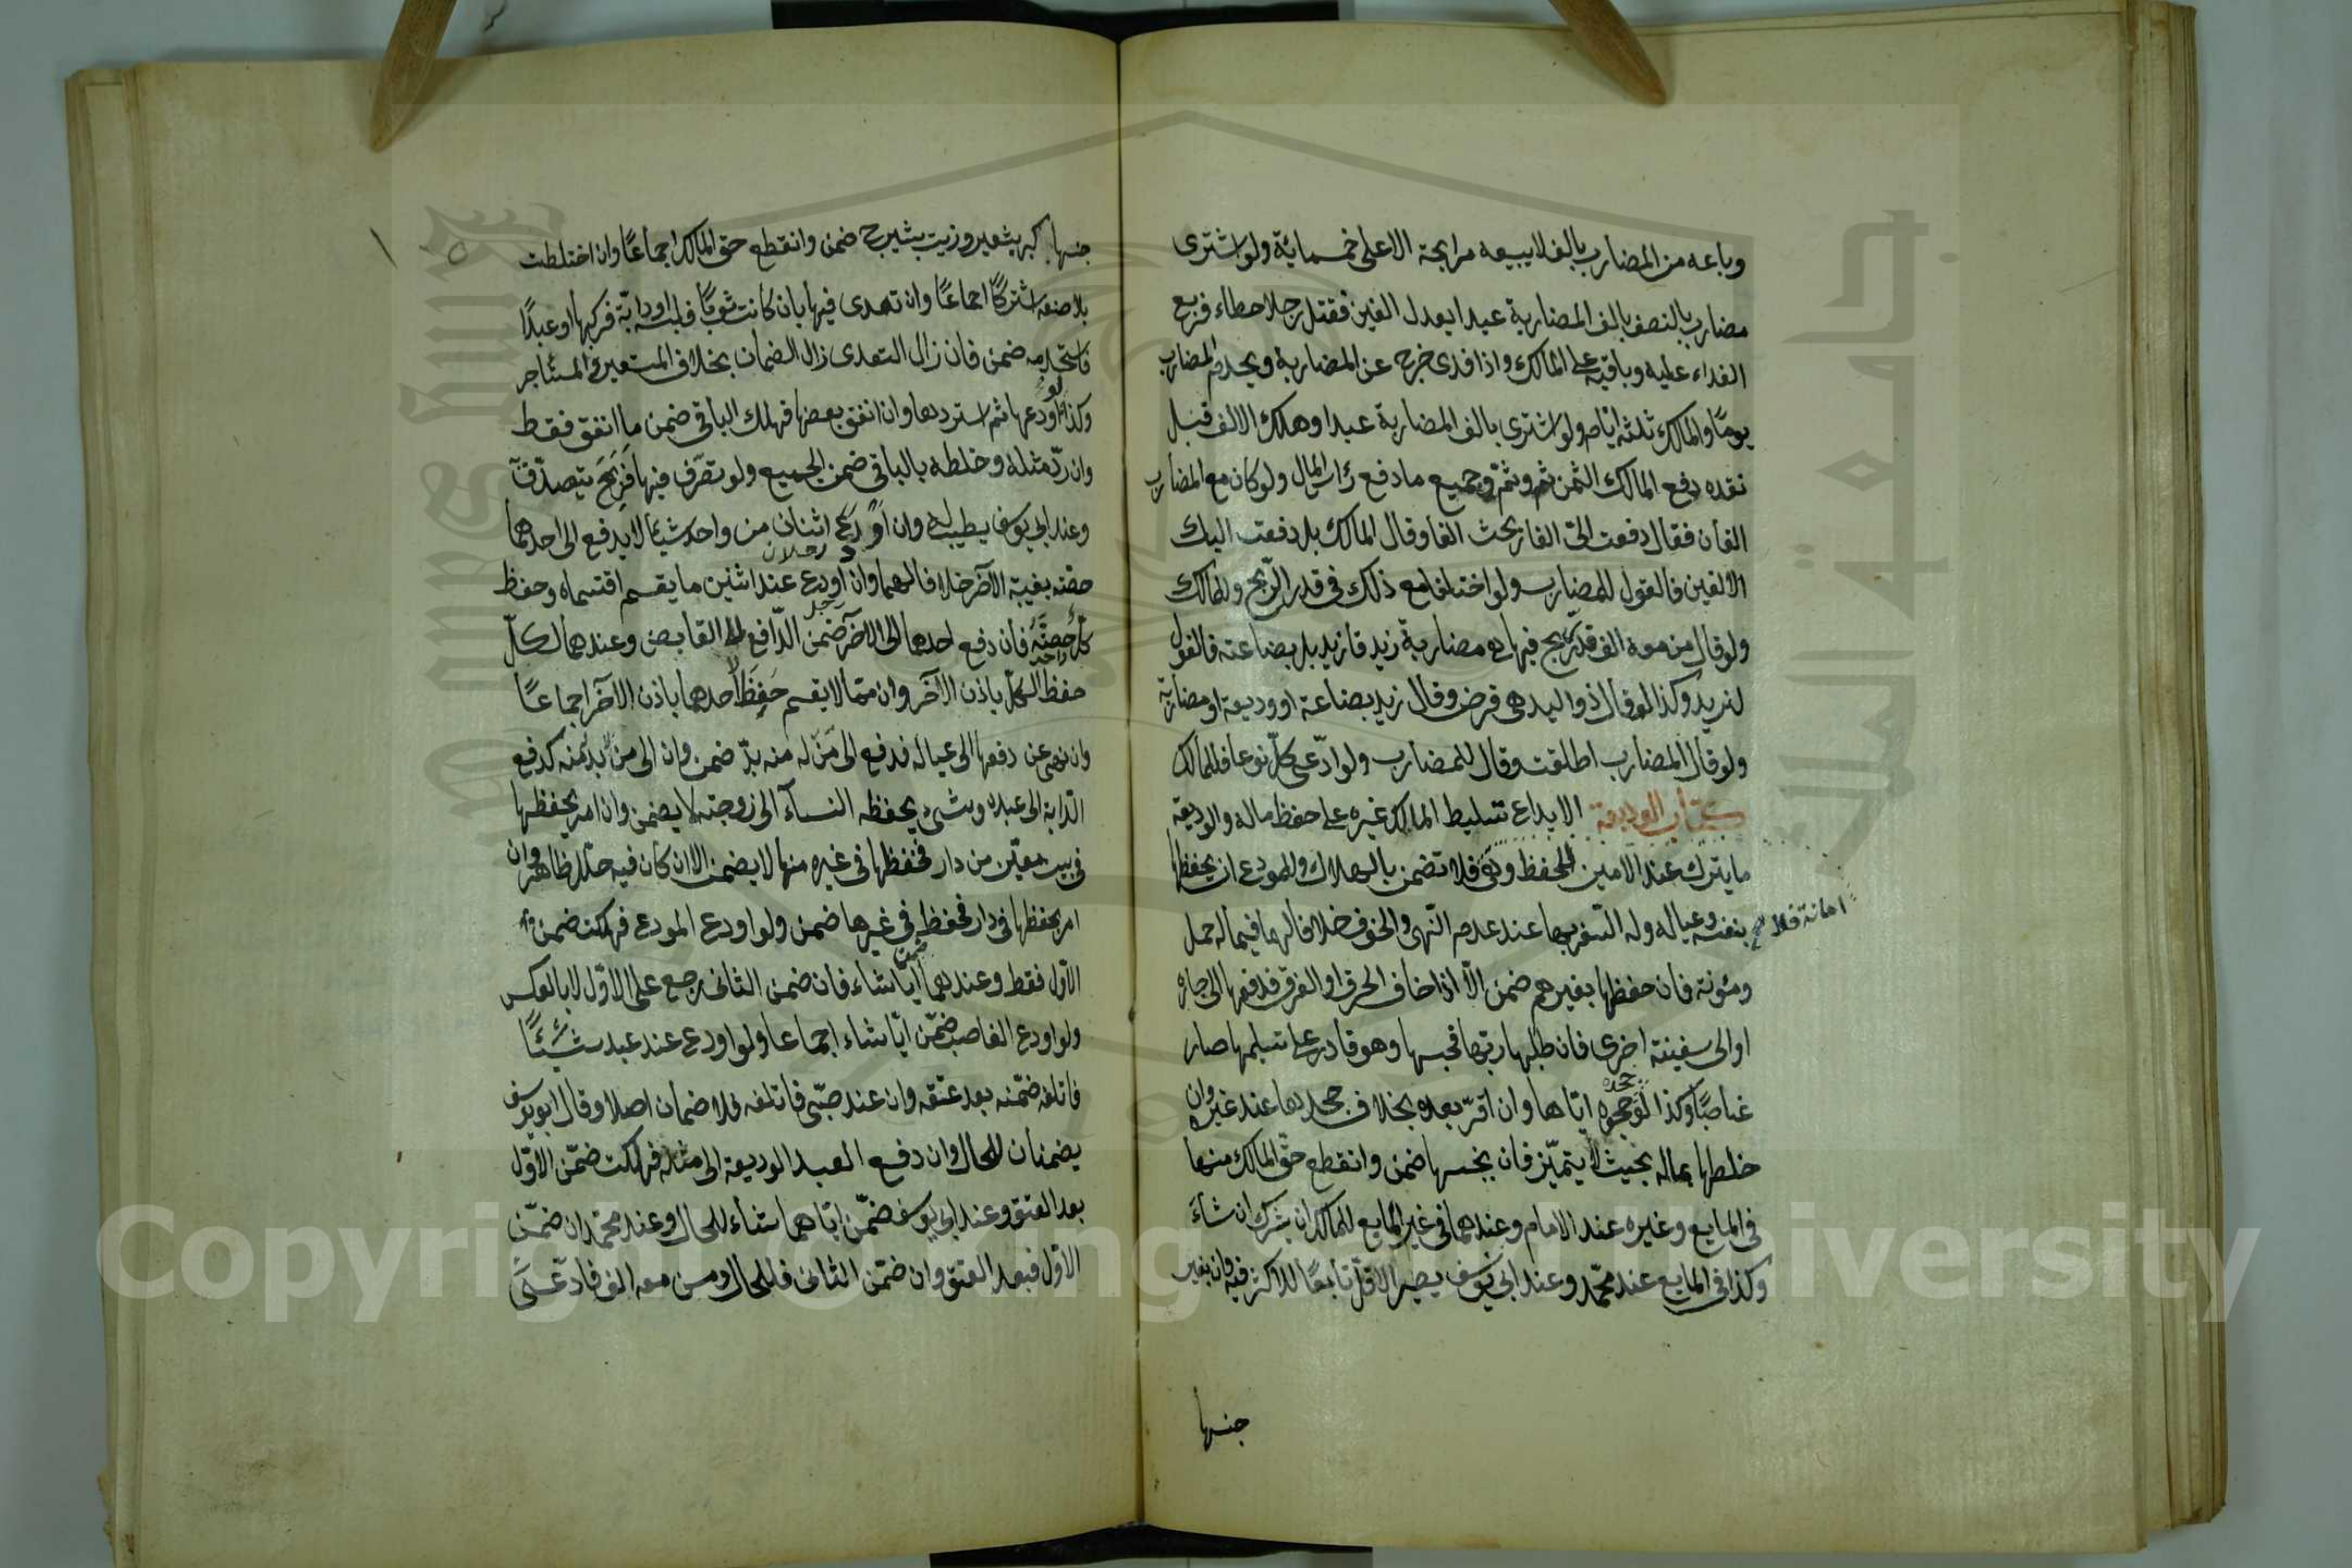 وباعه من المضارب بالف لا يبيعه مرابحة الا على خمسمائة ولو اشترى
مضارب بالنصف بالف المضاربة عبدا يعدل الفين فقتل رجلا خطاء فربع
الفداء عليه وباقيه على المالك واذا فدى خرج عن المضاربة ويخدم المضارب
يومًا والمالك ثلثة ايّام ولو اشترى بالف المضاربة عبدا وهلك الالف قبل
نقده دفع المالك الثمن ثم وثمّ وجميع ما دفع راس المال ولو كان مع المضارب
الفان فقال دفعت الىّ الفا ربحت الفا وقال المالك بل دفعت اليك
الالفين فالقول للمضارب ولو اختلفا مع ذلك فى قدر الرّبح وللمالك
ولو قال من معه الف قد ربح فيها هى مضاربة زيد قا زيد بل بضاعته فالقول
لزيد وكذا لو قال ذو اليد هى قرض وقال زيد بضاعة او وديعة او مضاربة
ولو قال المضارب اطلقت وقال للمضارب ولو ادّعى كلّ نوعا فللمالك
كتاب الوديعة الايداع تسليط المالك غيره على حفظ ماله والوديعة
ما يترك عند الامين للحفظ وهى فلا تضمن بالهلاك وللمودع ان يحفظها
امانة فلا صح
بنفسه وعياله وله السّفر بها عند عدم النّهى والخوف خلافا لهما فيما له حمل
ومئونة فان حفظها بغيرهم ضمن الّا اذا خاف الحرق او الغرق فدفعها الى جاره
او الى سفينة اخرى فان طلبها ربّها فحبسها وهو قادر على تسليمها صار
غاصبًا وكذا لو جحده ايّاها وان اقرّ بعده بخلاف جحدها عند غيره وان
خلطها بماله بحيث لا يتميّز فان بجنسها ضمن وانقطع حقّ المالك منها
فى المايع وغيره عند الامام وعندهما فى غير المايع للمالك ان يشرك ان شاءَ
وكذا فى المايع عند محمّد وعند ابى يوسف يصير الاقلّ تابعًا للاكثر فيه وان بغير
جنسها
جنسها كبر بشعير وزيت بشيرج ضمن وانقطع حق المالك اجماعًا وان اختلطت
بلا صنعه اشتركا اجماعًا وان تعدى فيها بان كانت ثوبًا فلبسه او دابّة فركبها او عبدًا
فاستخدمه ضمن فان زال التعدى زال الضمان بخلاف المستعير والمستأجر
وكذا لو اودعها ثم استردها وان انفق بعضها فهلك الباقى ضمن ما انفق فقط
وان ردّ مثله وخلطه بالباقى ضمن الجميع ولو تصرّف فيها فَرَبِحَ يتصدّق
وعند ابى يوسف يطيب له وان اودع اثنان من واحد شيئا لا يدفع الى احدهما
رجلان
حصّته بغيبة الآخر خلافا لهما وان اودع عند اثنين ما يقسم اقتسماه وحفظ
كلّ حصّتَهُ فان دفع احدهما الى الآخر ضَمِنَ الدّافع لا القابض وعندهما لكلّ
حفظ الكلّ باذن الآخر وان ممّا لا يقسم حَفِظَ احدهما باذن الآخر اجماعًا
وان نهى عن دفعها الى عياله فدفع الى مَنْ له منه بدّ ضمن وان الى من لا بدّ منه كدفع
الدّابة الى عبده وشىء يحفظه النساء الى زوجته لا يضمن وان امر بحفظها
فى بيت معيّن من دار فحفظها فى غيره منها لا يضمن الا ان كان فيه خلل ظاهر وان
امر بحفظها فى دار فحفظ فى غيرها ضمن ولو اودع المودع فهلكت ضمن
الاوّل فقط وعندهما ضمن ايّا شاء فان ضمن الثانى رجع على الاوّل لا بالعكس
ولو اودع الغاصب ضمّن ايّا شاء اجماعا ولو اودع عند عبد شيئًا
فاتلفه ضمّنه بعد عتقه وان عند صبّى فاتلفه فلا ضمان اصلا وقال ابو يوسف
يضمنان للحال وان دفع العبد الوديعة الى مثله فهلكت ضمّن الاوّل
بعد العتق وعند ابى يوسف ضمّن ايّاهما شاء للحال وعند محمّد ان ضمّن
الاوّل فبعد العتق وان ضمّن الثانى فللحال ومن معه الف فادّعى
جامعة الملك سعود
Copyright © King Saud University